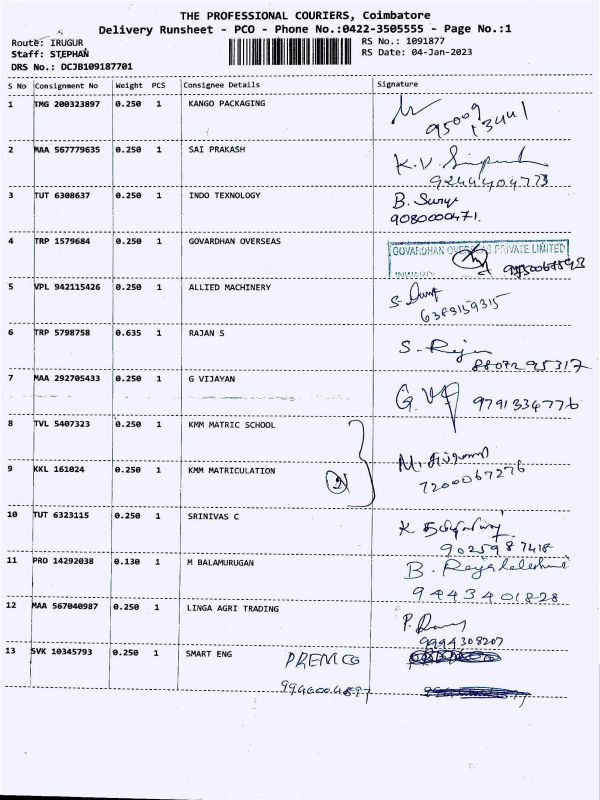 THE PROFESSIONAL COURIERS, Coimbatore
Delivery Runsheet - PCO - Phone No.:0422-3505555 - Page No.:1
Route: IRUGUR
RS No.: 1091877
Staff: STEPHAN
RS Date: 04-Jan-2023
DRS No.: DCJB109187701
S No Consignment No Weight PCS Consignee Details Signature
1 TMG 200323897 0.250 1 KANGO PACKAGING
95009 13441
2 MAA 567779635 0.250 1 SAI PRAKASH
K.V.
9244404773
3 TUT 6308637 0.250 1 INDO TEXNOLOGY B. Surya
9080000471.
4 TRP 1579684 0.250 1 GOVARDHAN OVERSEAS
GOVARDHAN OVERSEAS PRIVATE LIMITED
INWARD
5 VPL 942115426 0.250 1 ALLIED MACHINERY
6383159315
6 TRP 5798758 0.635 1 RAJAN S
S. Rajan
8807295317
7 MAA 292705433 0.250 1 G VIJAYAN
9791334776
8 TVL 5407323 0.250 1 KMM MATRIC SCHOOL
9 KKL 161024 0.250 1 KMM MATRICULATION
2
7200067276
10 TUT 6323115 0.250 1 SRINIVAS C
9025987418
11 PRO 14292038 0.130 1 M BALAMURUGAN
B. Rajalakshmi
9443401828
12 MAA 567040987 0.250 1 LINGA AGRI TRADING
9994308207
13 SVK 10345793 0.250 1 SMART ENG PREMCG